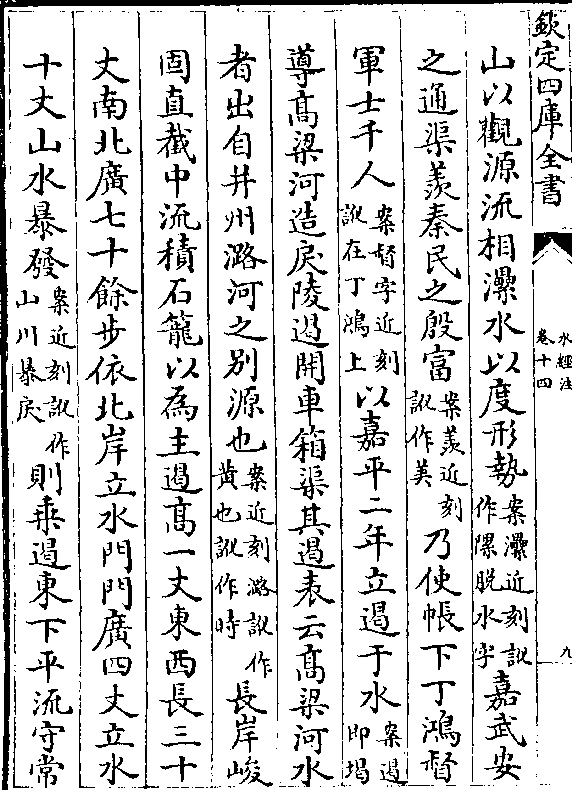 欽定四庫全書
水經注
卷十四
九
山以觀源流相㶟水以度形勢案㶟近刻訛作隰脱水字嘉武安
之通渠羨秦民之殷富案羨近刻訛作美乃使帳下丁鴻督
軍士千人案督字近刻訛在丁鴻上以嘉平二年立遏于水案遏即堨
導高梁河造戾陵遏開車箱渠其遏表云高梁河水
者出自并州潞河之别源也案近刻潞訛作黄也訛作時長岸峻
固直截中流積石籠以為主遏高一丈東西長三十
丈南北廣七十餘步依北岸立水門門廣四丈立水
十丈山水暴發案近刻訛作山川暴戾則乘遏東下平流守常